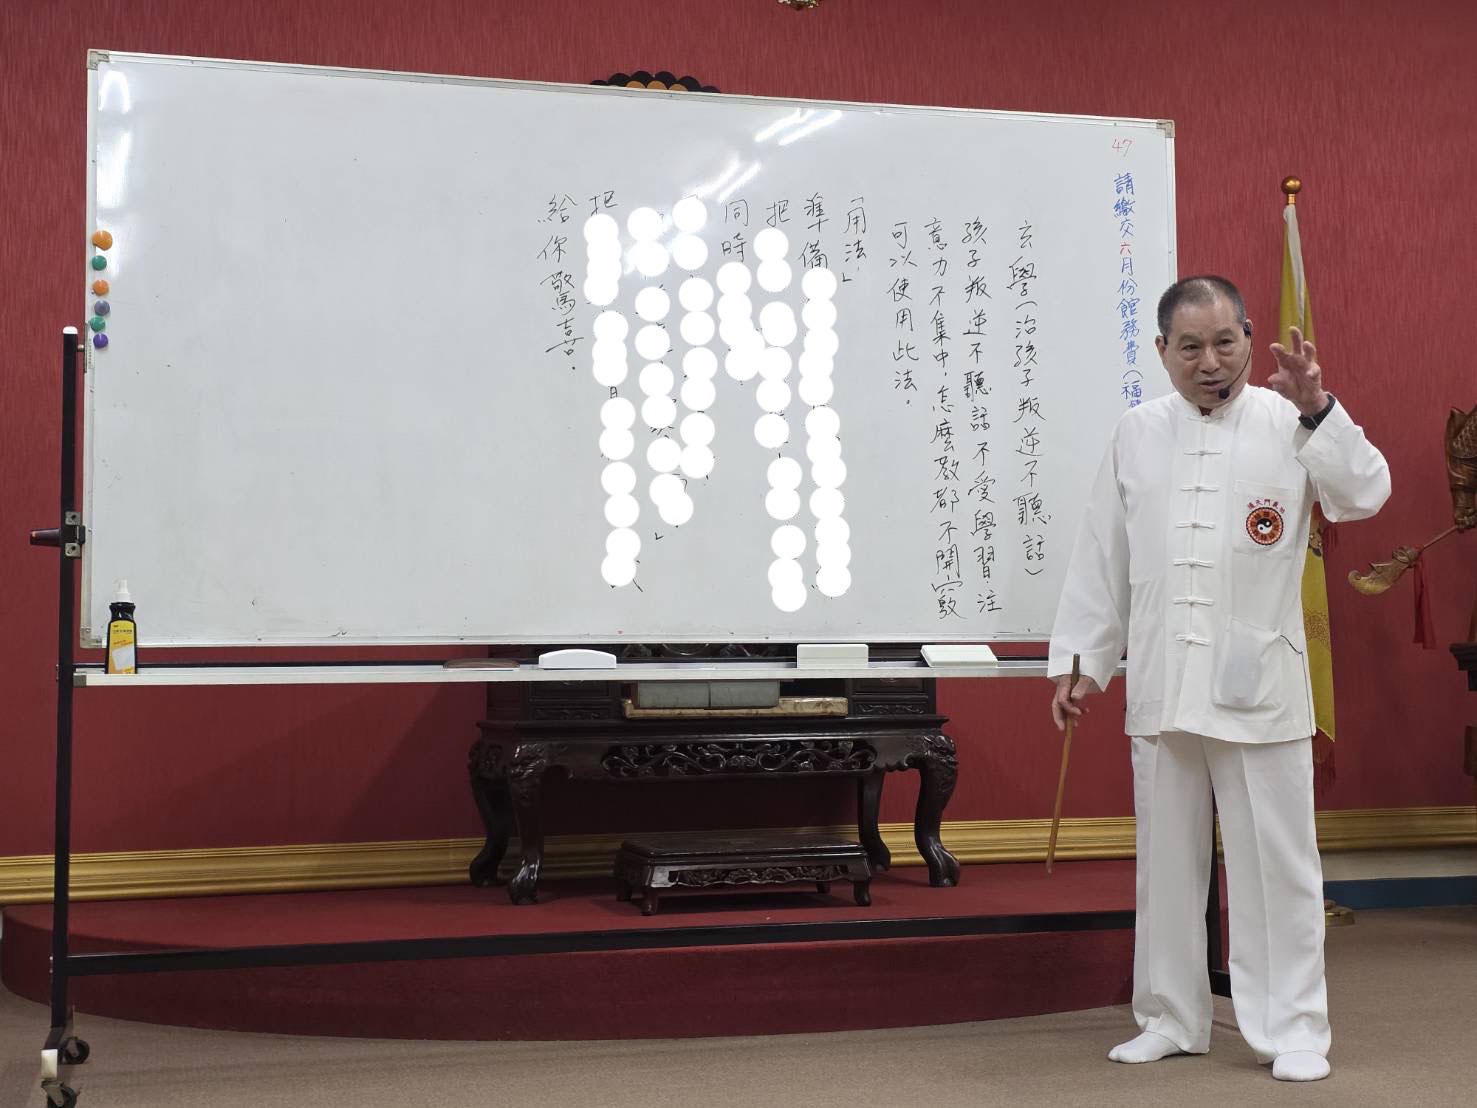 47
請繳交六月份館務費(福
玄學(治孩子叛逆不聽話)
孩子叛逆不聽話不受學習.注
意力不集中,怎麼教都不開竅
可以使用此法。
「用法」
準備
把
同時
把
給你驚喜。